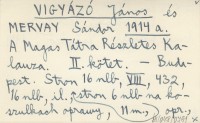 VIGYÁZÓ János és
MERVAY Sándor 1914 a.
A Magas Tátra Részletes Ka-
lauza. II. kötet. – Buda-
pest. Stron 16 nlb, VIII, 432,
16 nlb, il. i stron 6 nlb na ko-
szulkach oprawy, 11 m., opr.,